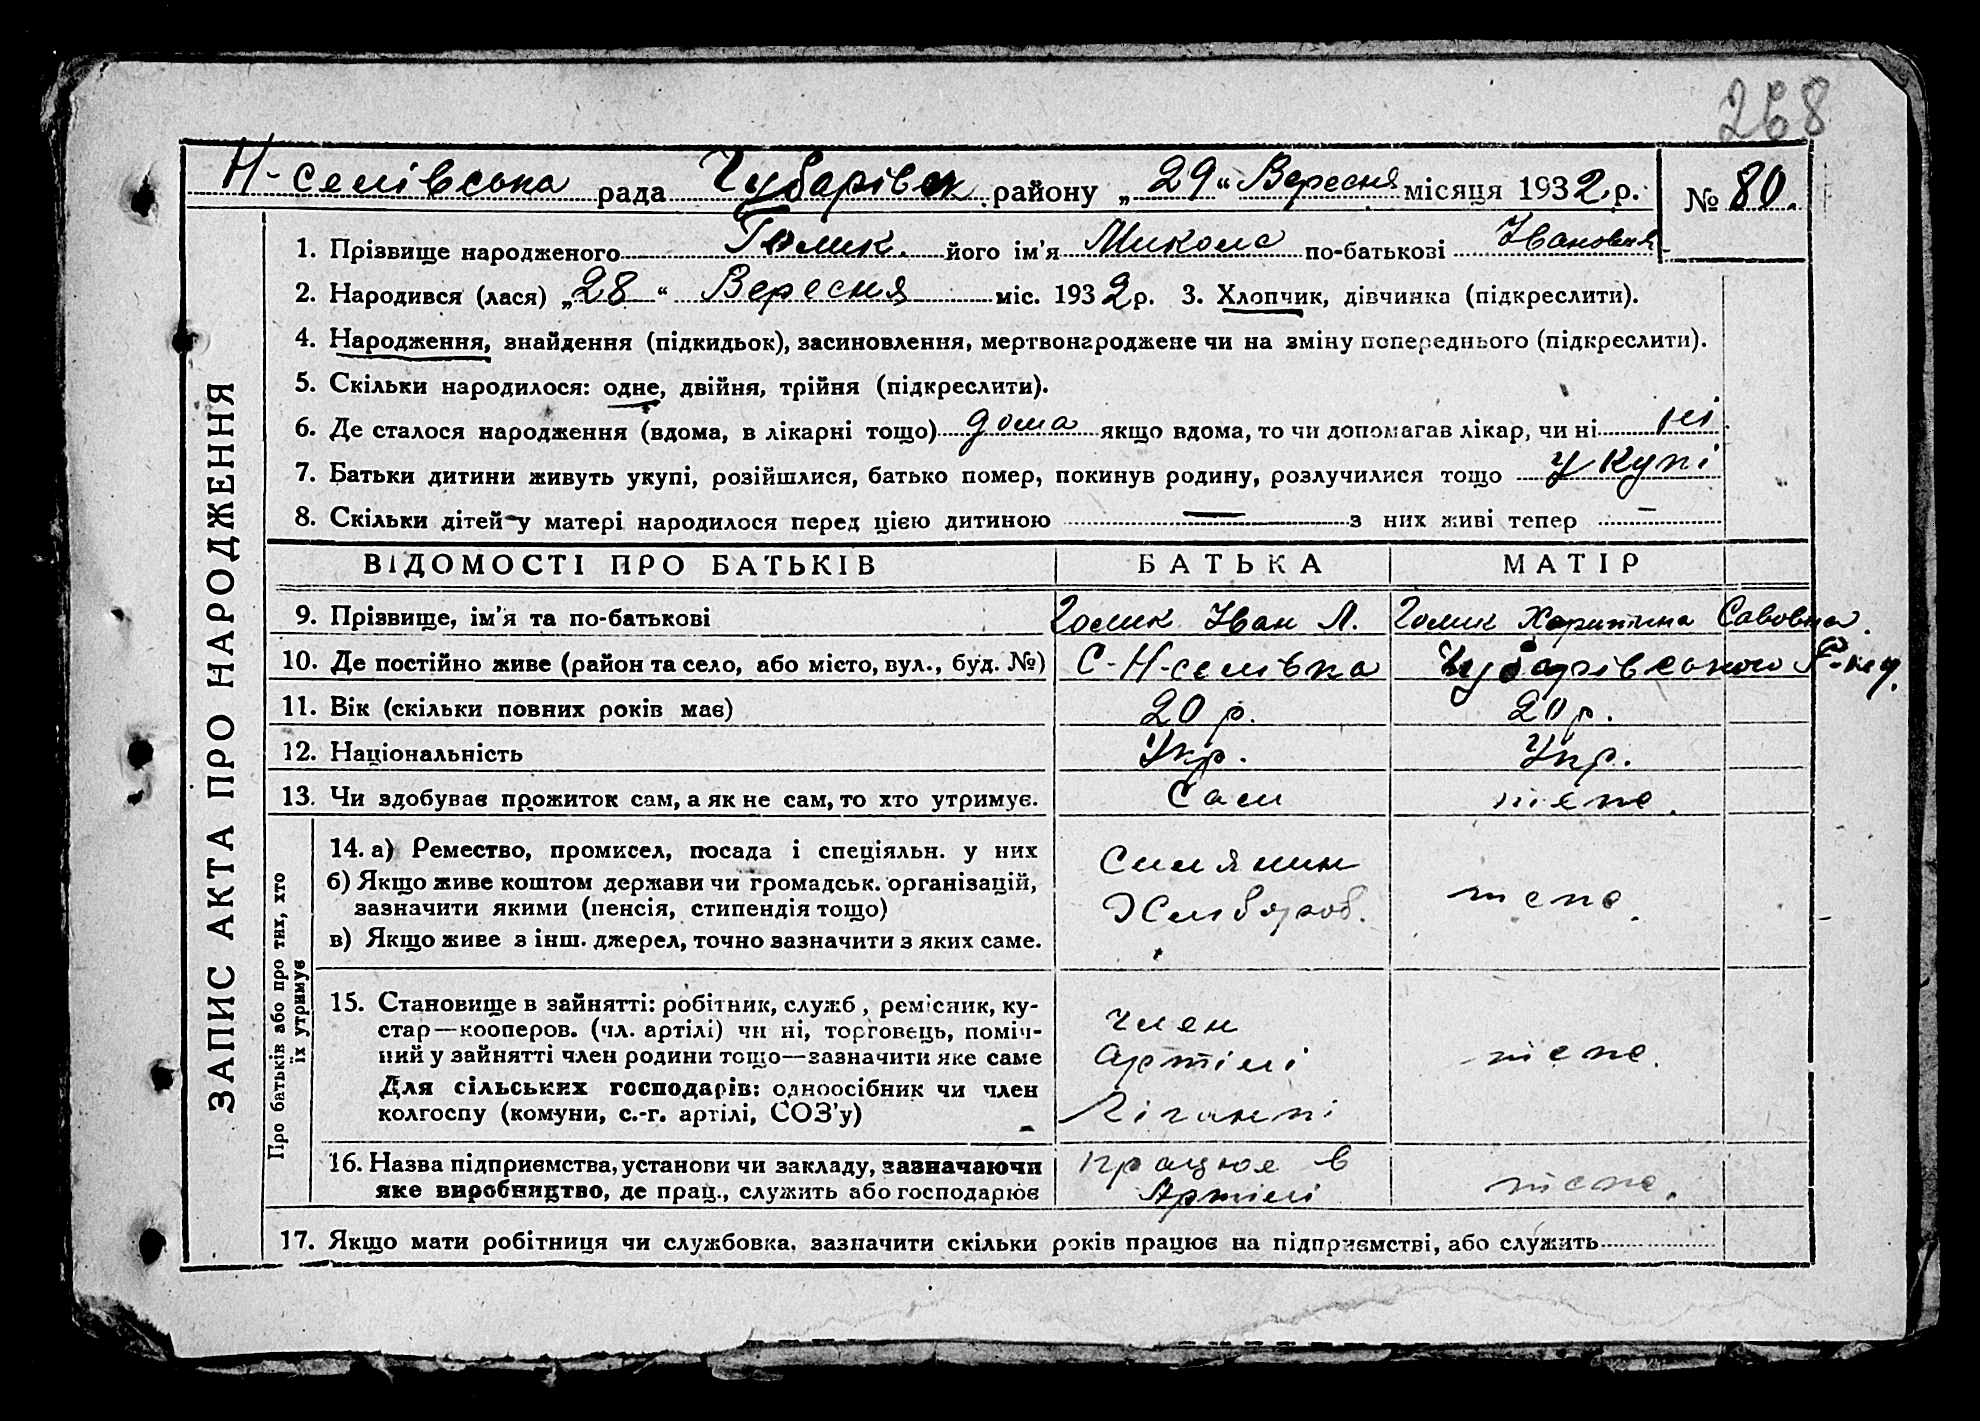 268
Н-селівська рада Чубарівск району „29“ Вересня місяця 1932 р. № 80.
1. Прізвище народженого Голик. його ім'я Микола по-батькові Іванович
2. Народився (лася) „28“ Вересня міс. 1932 р. 3. Хлопчик, дівчинка (підкреслити).
4. Народження, знайдення (підкидьок), засиновлення, мертвонароджене чи на зміну попереднього (підкреслити).
5. Скільки народилося: одне, двійня, трійня (підкреслити).
6. Де сталося народження (вдома, в лікарні тощо) дома якщо вдома, то чи допомагав лікар, чи ні ні
7. Батьки дитини живуть укупі, розійшлися, батько помер, покинув родину, розлучилися тощо укупі
8. Скільки дітей у матері народилося перед цією дитиною — з них живі тепер —
ЗАПИС АКТА ПРО НАРОДЖЕННЯ
ВІДОМОСТІ ПРО БАТЬКІВ БАТЬКА МАТІР
9. Прізвище, ім'я та по-батькові Голик Іван Л. Голик Харитина Савовна.
10. Де постійно живе (район та село, або місто, вул., буд. №) С-Н-селівка Чубарівського Р-ну.
11. Вік (скільки повних років має) 20 р. 20 р.
12. Національність Укр. Укр.
13. Чи здобуває прожиток сам, а як не сам, то хто утримує. Сам теж.
Про батьків або про тих, хто
їх утримує
14. а) Ремество, промисел, посада і спеціяльн. у них Силянин
б) Якщо живе коштом держави чи громадськ. організацій,
зазначити якими (пенсія, стипендія тощо) Хлібороб.
в) Якщо живе з інш. джерел, точно зазначити з яких саме.
15. Становище в зайнятті: робітник, служб, ремісник, ку-
стар—кооперов. (чл. артілі) чи ні, торговець, поміч- Член
ний у зайнятті член родини тощо—зазначити яке саме артілі
Для сільських господарів: одноосібник чи член
колгоспу (комуни, с.-г. артілі, СОЗ'у)
16. Назва підприємства, установи чи закладу, зазначаючи працює в
яке виробництво, де прац., служить або господарює Артілі
17. Якщо мати робітниця чи службовка, зазначити скільки років працює на підприємстві, або служить